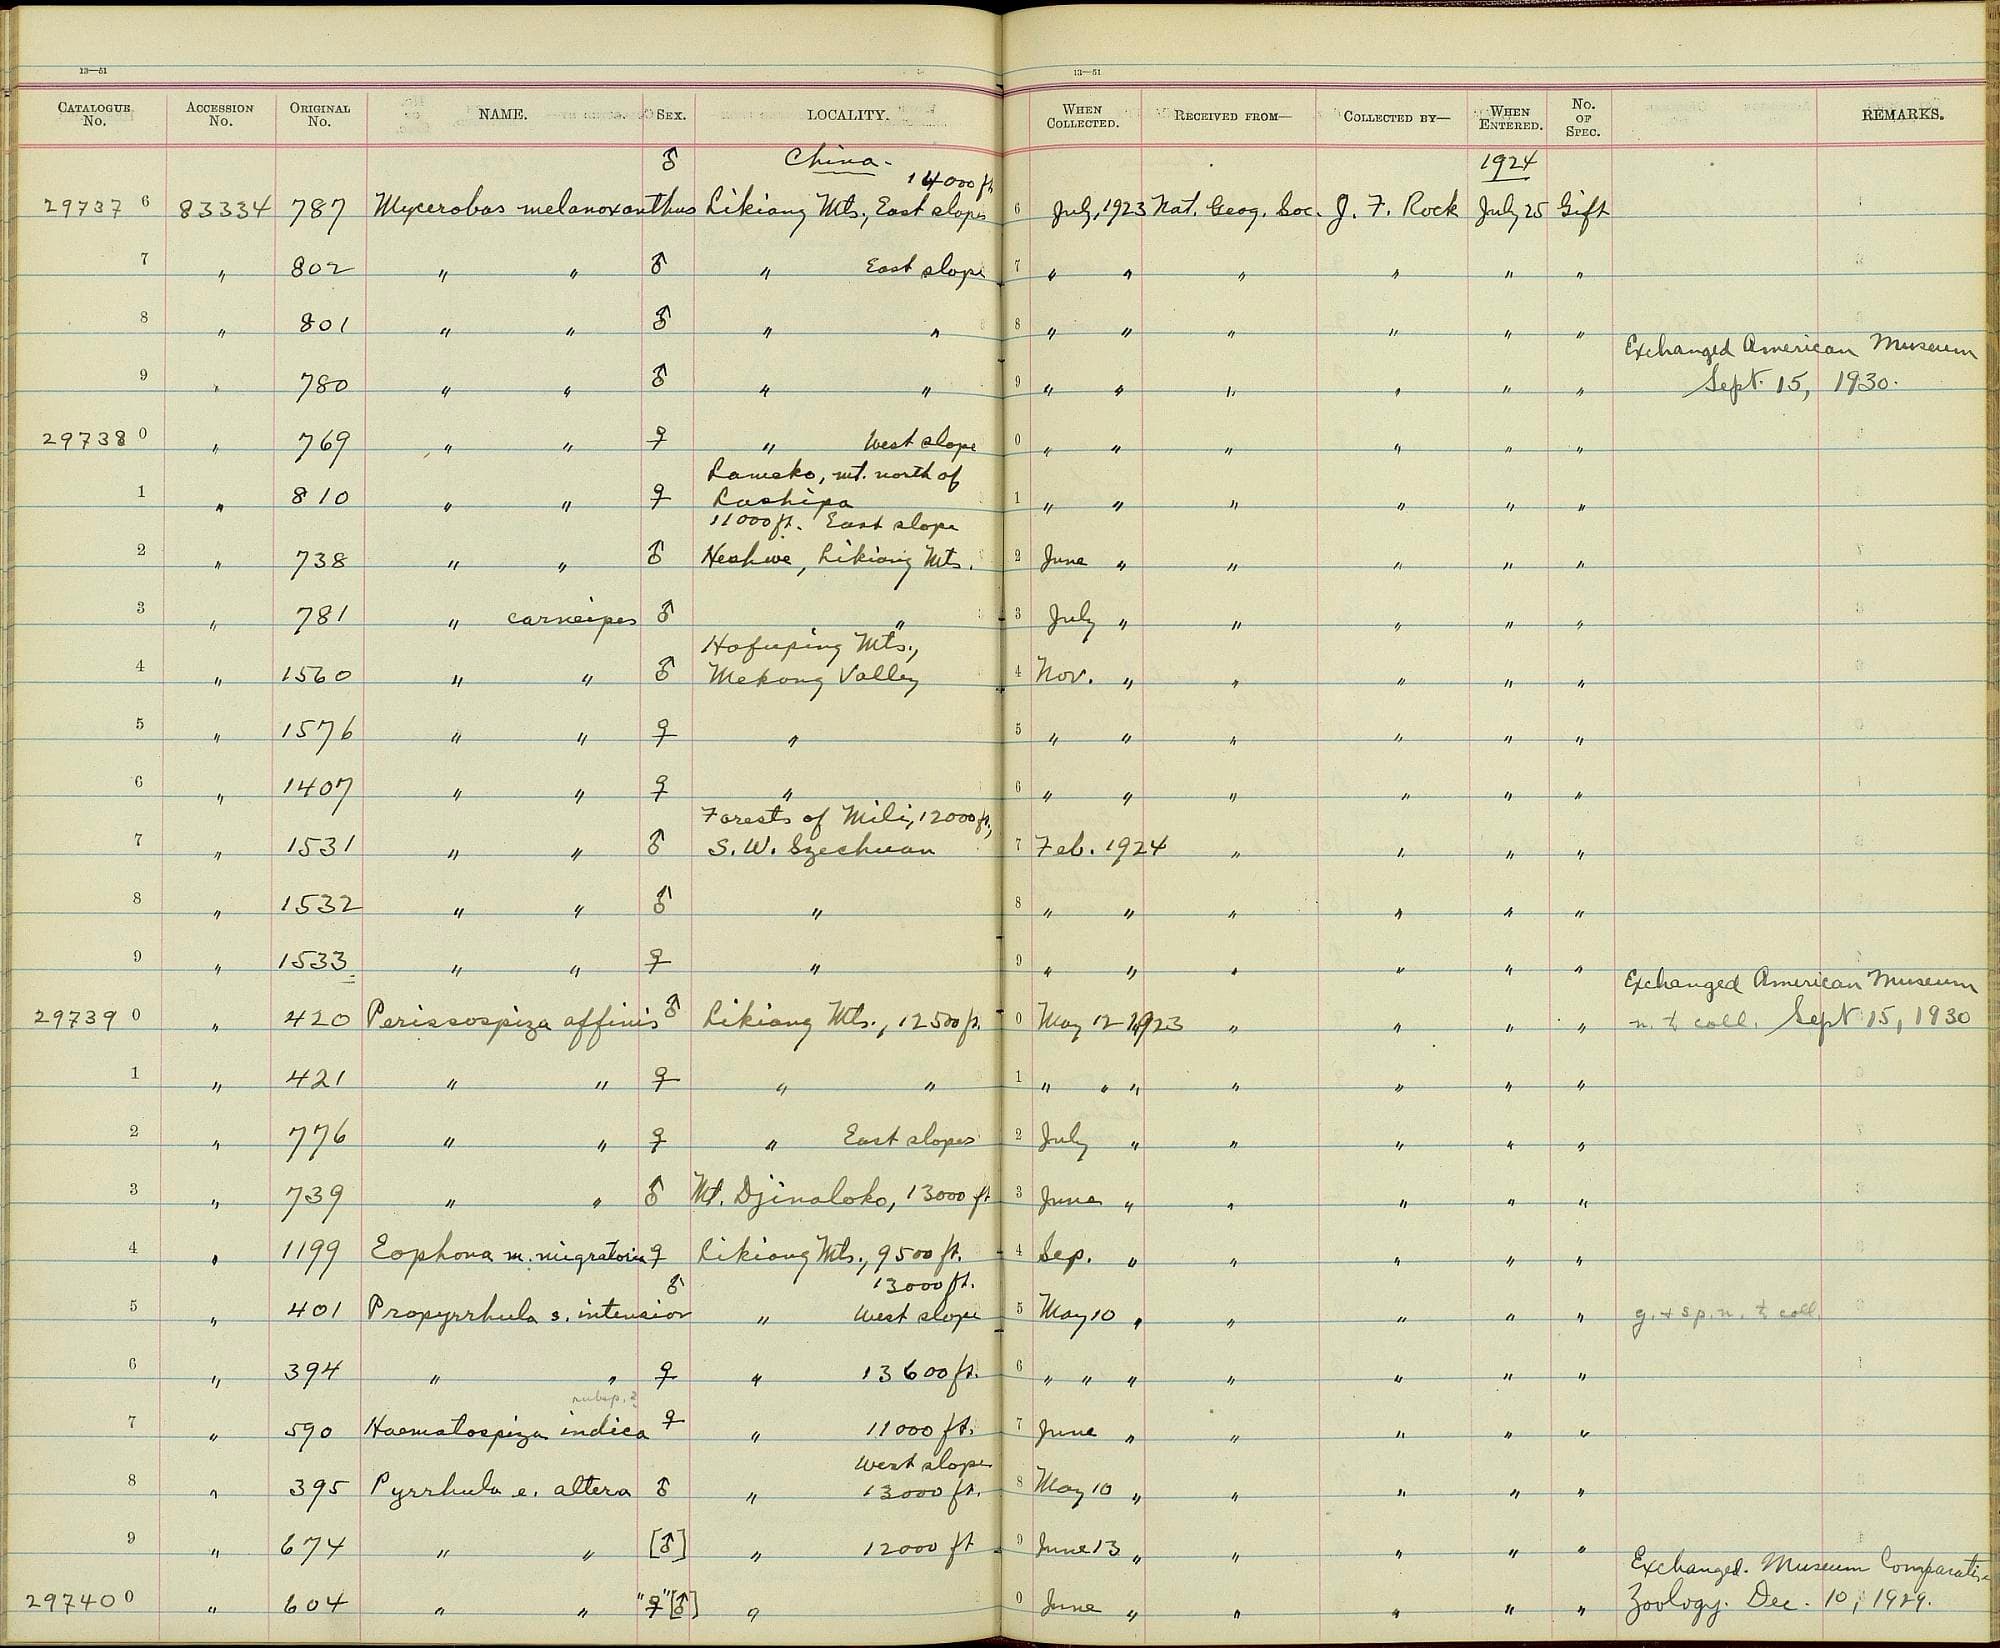 13—51 13—51
CATALOGUE No. ACCESSION No. ORIGINAL No. NAME. SEX. LOCALITY. WHEN COLLECTED. RECEIVED FROM— COLLECTED BY— WHEN ENTERED. No. OF SPEC. REMARKS.
♂ China. 1924
14000 ft.
29737 6 83334 787 Mycerobas melanoxanthus Likiang Mts., East slopes 6 July, 1923 Nat. Geog. Soc. J. F. Rock July 25 Gift
7 " 802 " " ♂ " East slope 7 " " " " " "
8 " 801 " " ♂ " " 8 " " " " " "
Exchanged American Museum
9 " 780 " " ♂ " " 9 " " " " " " Sept. 15, 1930.
29738 0 " 769 " " ♀ " West slope 0 " " " " " "
Lameko, mt. north of
1 " 810 " " ♀ Lashipa 1 " " " " " "
11000 ft. East slope
2 " 738 " " ♂ , Likiang Mts. 2 June " " " " "
3 " 781 " carneipes ♂ " 3 July " " " " "
Hofuping Mts.,
4 " 1560 " " ♂ Mekong Valley 4 Nov. " " " " "
5 " 1576 " " ♀ " 5 " " " " " "
6 " 1407 " " ♀ " 6 " " " " " "
Forests of Mili, 12000 ft.,
7 " 1531 " " ♂ S. W. Szechuan 7 Feb. 1924 " " " "
8 " 1532 " " ♂ " 8 " " " " " "
9 " 1533 " " ♀ " 9 " " " " " "
Exchanged American Museum
29739 0 " 420 Perissospiza affinis ♂ Likiang Mts., 12500 ft. 0 May 12 1923 " " " " n. t coll. Sept 15, 1930
1 " 421 " " ♀ " " 1 " " " " " " "
2 " 776 " " ♀ " East slopes 2 July " " " " "
3 " 739 " " ♂ Mt. Djinaloko, 13000 ft 3 June " " " " "
4 " 1199 Eophona m. migratoria ♀ Likiang Mts., 9500 ft. 4 Sep. " " " " "
♂ 13000 ft.
5 " 401 Propyrrhula s. intensior " West slope 5 May 10 " " " " " g. + sp. n. t coll.
6 " 394 " " ♀ " 13600 ft. 6 " " " " " " "
subsp. ?
7 " 590 Haematospiza indica ♀ " 11000 ft. 7 June " " " " "
West slope
8 " 395 Pyrrhula e. altera ♂ " 13000 ft. 8 May 10 " " " " "
9 " 674 " " [♂] " 12000 ft 9 June 13 " " " " "
Exchanged. Museum Comparative
29740 0 " 604 " " "♀" [♂] " 0 June " " " " " Zoology. Dec. 10, 1929.